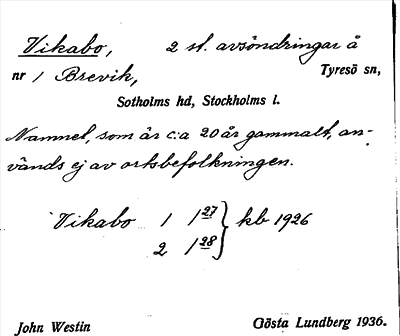 Vikabo, 2 st. avsöndringar å
nr 1 Brevik, Tyresö sn,
Sotholms hd, Stockholms l.
Namnet, som är c:a 20 år gammalt, an-
vänds ej av ortsbefolkningen.
Vikabo 1 1 27 } kb 1926
2 1 28
John Westin Gösta Lundberg 1936.